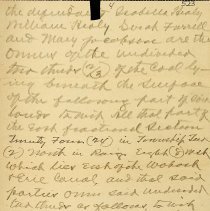 the defendants Isabella
William Reedy David Farrell
and Mary Jacobson are the
owners of the undivided
two thirds (2/3) of the Coal ly
ing beneath the surface
of the following part of
lands to wit All that part of
the East fractional Section
Twenty Four (24) in Township Two
(2) North in Range Eight (8) West
which lies East of the Wabash
& Erie Canal and that said
parties own said undivided
two thirds as follows to wit